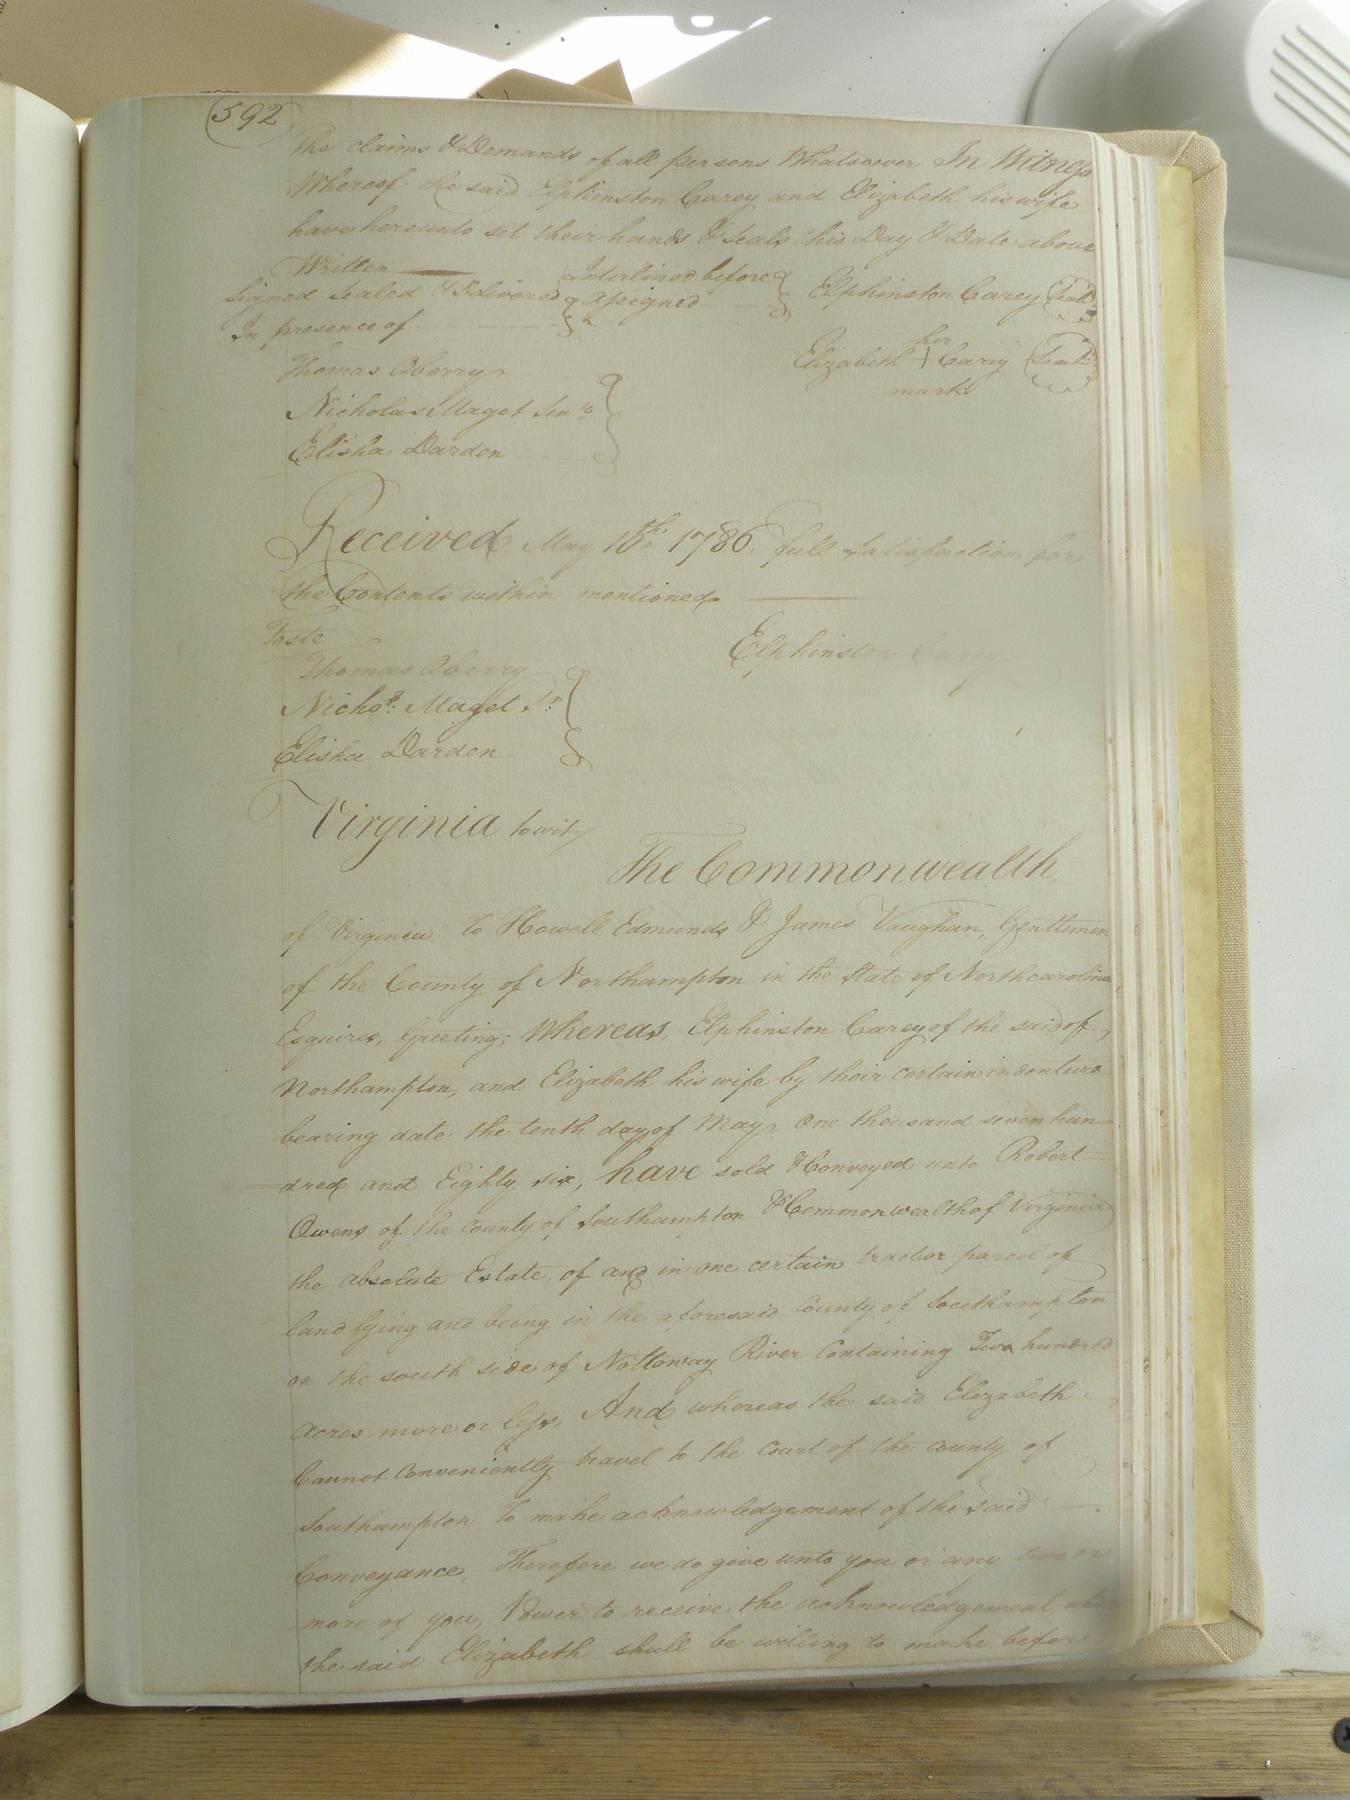 592
the claims & Demands of all persons Whatsoever In Witness
Whereof the said Elphinston Carey and Elizabeth his wife
have hereunto set their hands & Seals this Day & Date above
Written
Signed Sealed & Delivered } Interlined before } Elphinston Carey (Seal)
In presence of } assigned
her
Elizabeth + Carey (Seal)
mark
Thomas Oberry
Nicholas Maget Senr
Elisha Darden
Received May 10th 1786, full Satisfaction for
the Contents within mentioned
Teste
Elphinston Carey
Thomas Oberry
Nichos. Maget Sr.
Elisha Darden
Virginia towit
The Commonwealth
of Virginia To Howell Edmunds & James Vaughan, Gentlemen
of the County of Northampton in the State of Northcarolina
Esquires, Greeting; Whereas, Elphinston Carey of the said of
Northampton, and Elizabeth his wife by their certain indenture
bearing date the tenth day of May, One thousand seven hun
dred and Eighty six, have sold & Conveyed unto Robert
Owens of the county of Southampton & Commonwealth of Virginia
the absolute Estate of and in one certain tract or parcel of
land lying and being in the aforesaid County of Southampton
on the south side of Nottoway River Containing Two hundred
acres more or less, And whereas the said Elizabeth
Cannot Conveniently travel to the Court of the county of
Southampton To make acknowledgement of the said
Conveyance, Therefore we do give unto you or any two or
more of you, Power to receive the acknowledgement
the said Elizabeth shall be willing to make before